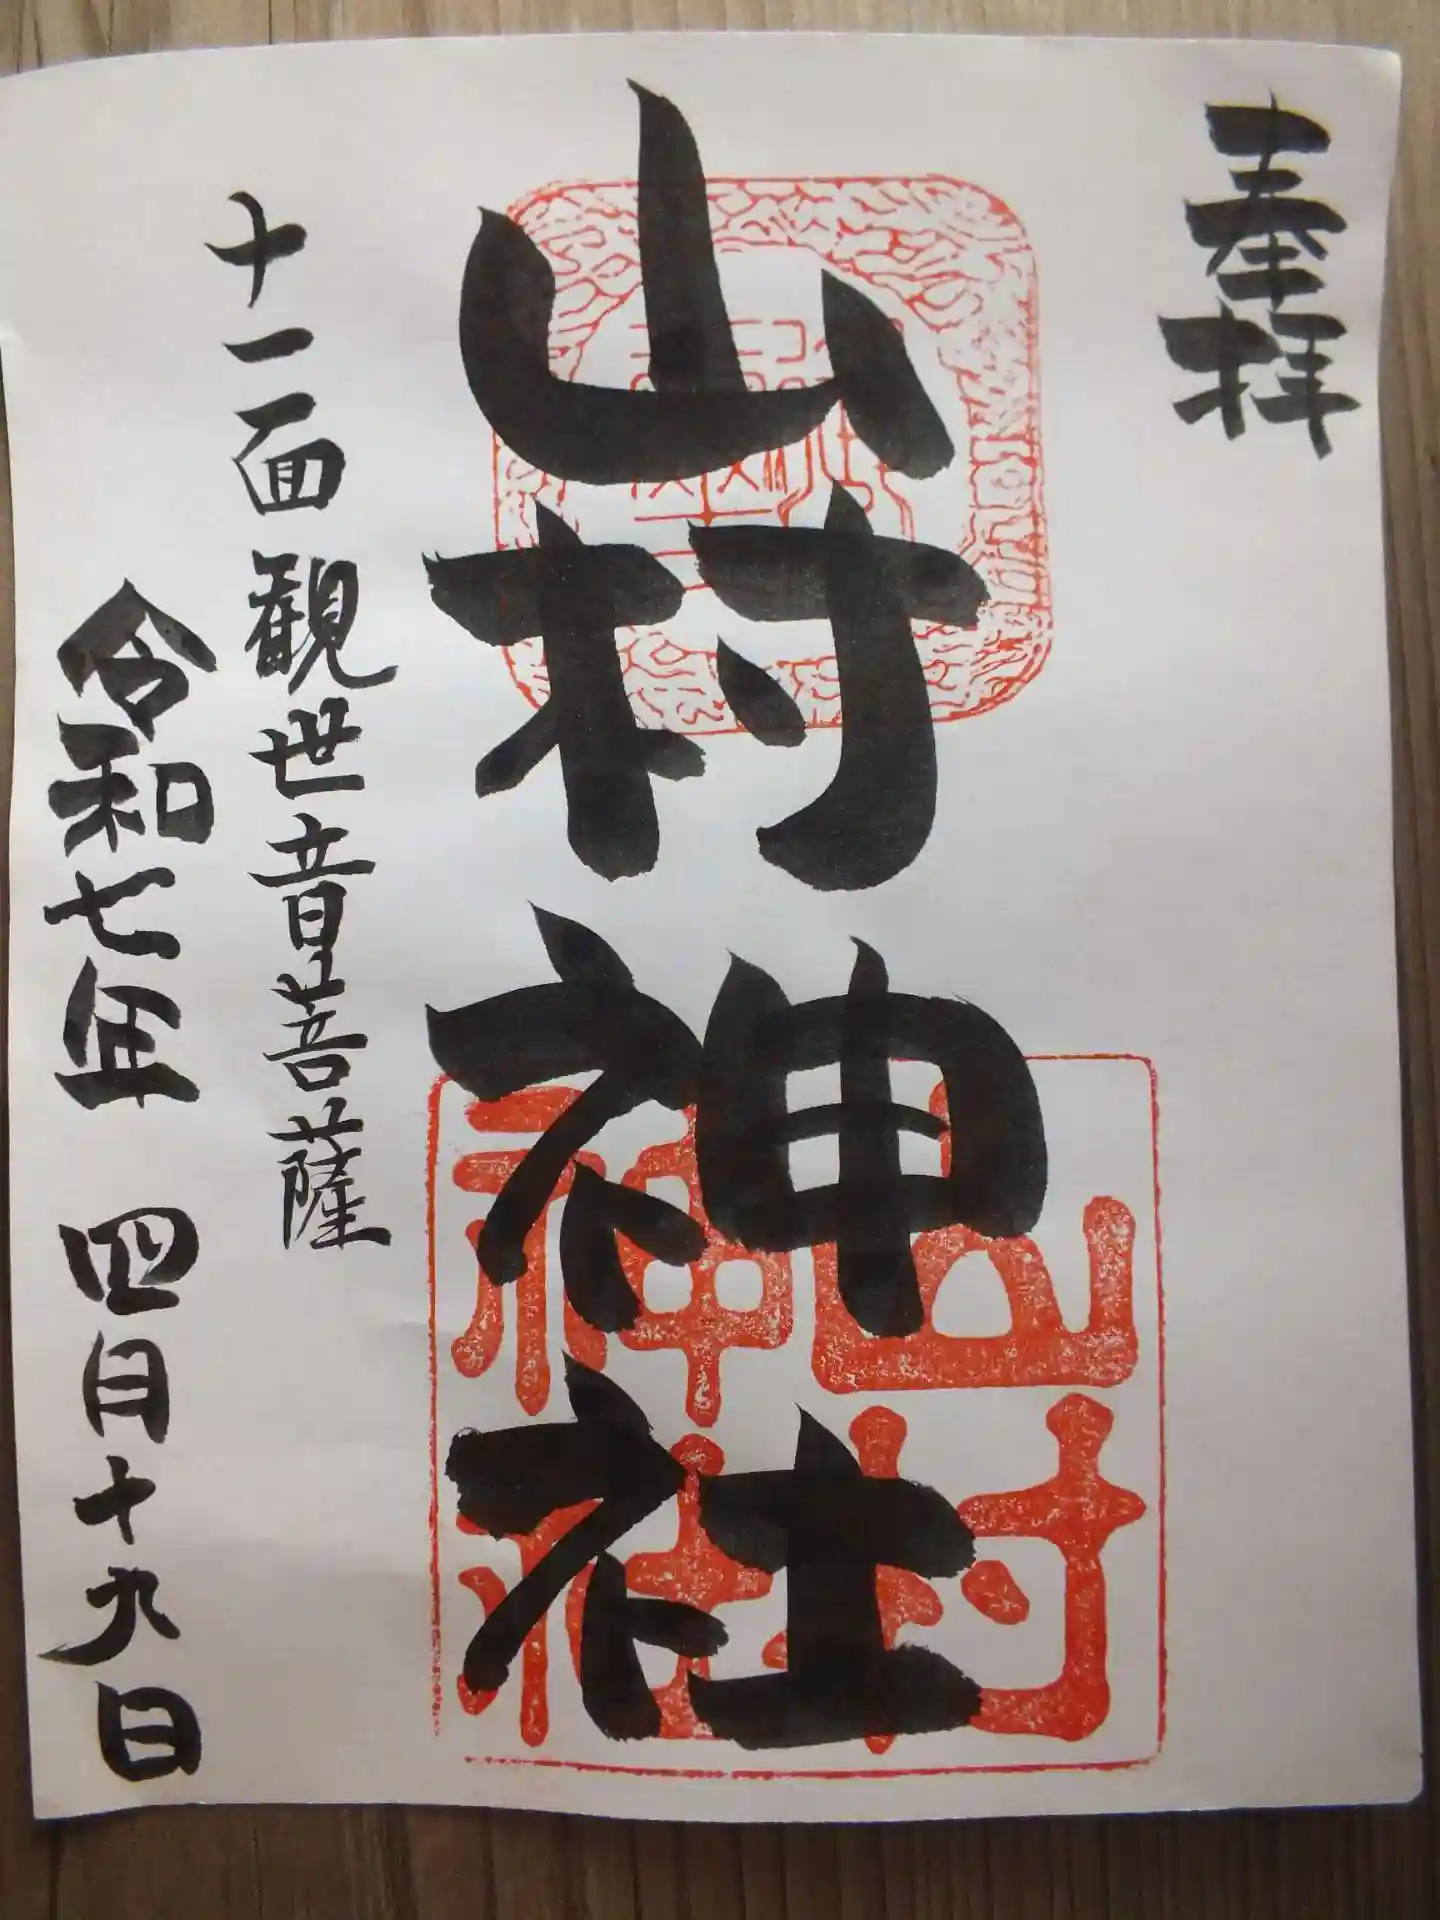 奉拝
山村神社
山村神社
十一面観世音菩薩
令和七年 四月十九日